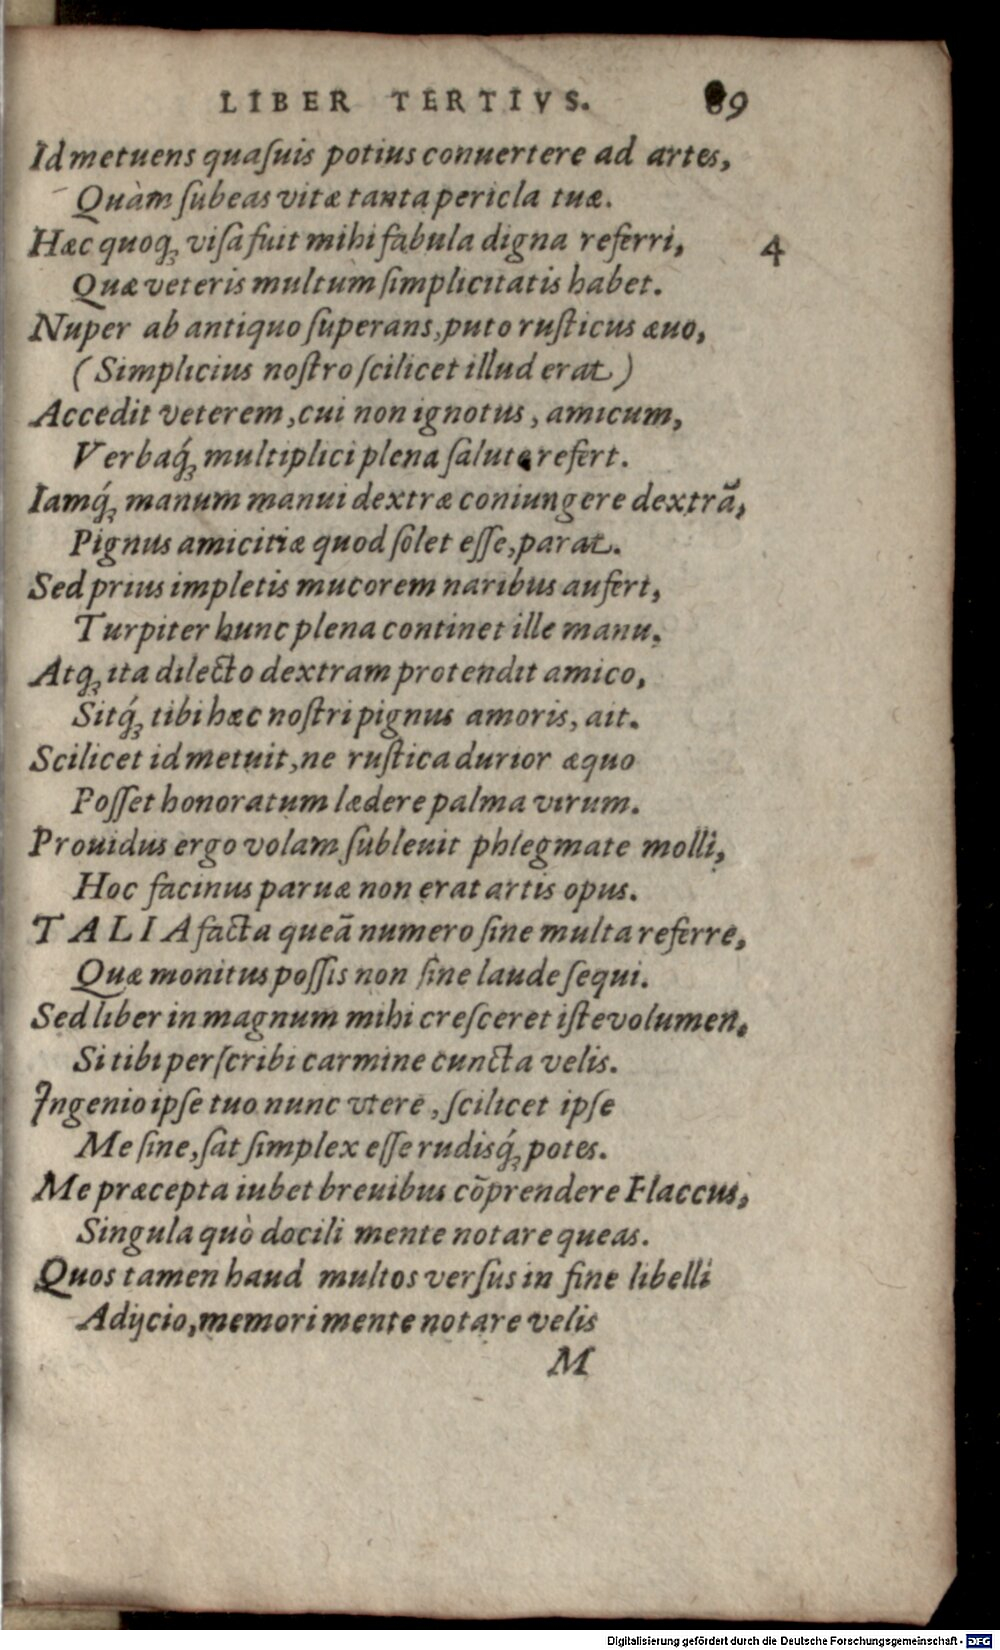 LIBER TERTIVS. 89
Id metuens quaſuis potius conuertere ad artes,
Quàm ſubeas vitæ tanta pericla tuæ.
Hæc quoq; viſa fuit mihi fabula digna referri, 4
Quæ veteris multum ſimplicitatis habet.
Nuper ab antiquo ſuperans, puto ruſticus æuo,
(Simplicius noſtro ſcilicet illud erat)
Accedit veterem, cui non ignotus, amicum,
Verbaq́; multiplici plena ſalute refert.
Iamq́; manum manui dextræ coniungere dextrã,
Pignus amicitiæ quod ſolet eſſe, parat.
Sed prius impletis mucorem naribus aufert,
Turpiter hunc plena continet ille manu.
Atq; ita dilecto dextram protendit amico,
Sitq́; tibi hæc noſtri pignus amoris, ait.
Scilicet id metuit, ne ruſtica durior æquo
Poſſet honoratum lædere palma virum.
Prouidus ergo volam ſubleuit phlegmate molli,
Hoc facinus paruæ non erat artis opus.
TALIA facta queã numero ſine multa referre,
Quæ monitus poſſis non ſine laude ſequi.
Sed liber in magnum mihi creſceret iſte volumen,
Si tibi perſcribi carmine cuncta velis.
Ingenio ipſe tuo nunc vtere, ſcilicet ipſe
Me ſine, ſat ſimplex eſſe rudisq́; potes.
Me præcepta iubet breuibus cõprendere Flaccus,
Singula quò docili mente notare queas.
Quos tamen haud multos verſus in fine libelli
Adijcio, memori mente notare velis
M
Digitalisierung gefördert durch die Deutsche Forschungsgemeinschaft - DFG